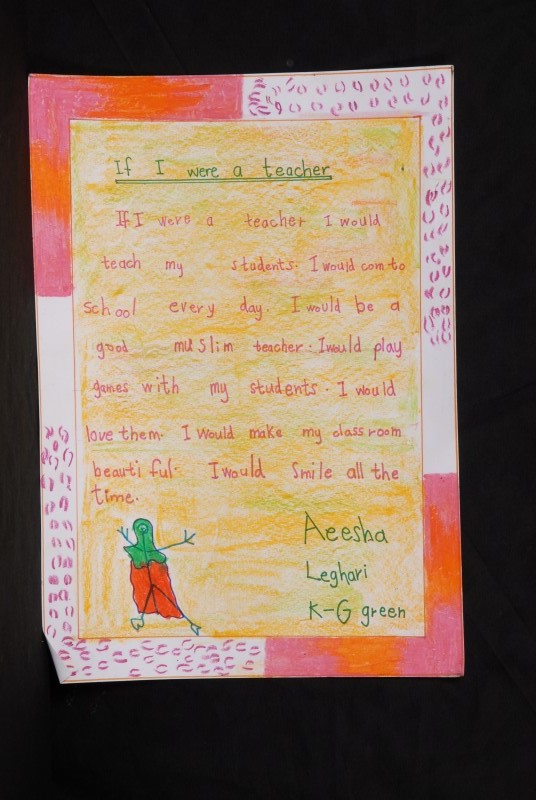 If I were a teacher
If I were a teacher I would
teach my students. I would com to
school every day. I would be a
good muslim teacher. I would play
games with my students. I would
love them. I would make my classroom
beautiful. I would smile all the
time.
Aeesha
Leghari
K-G green